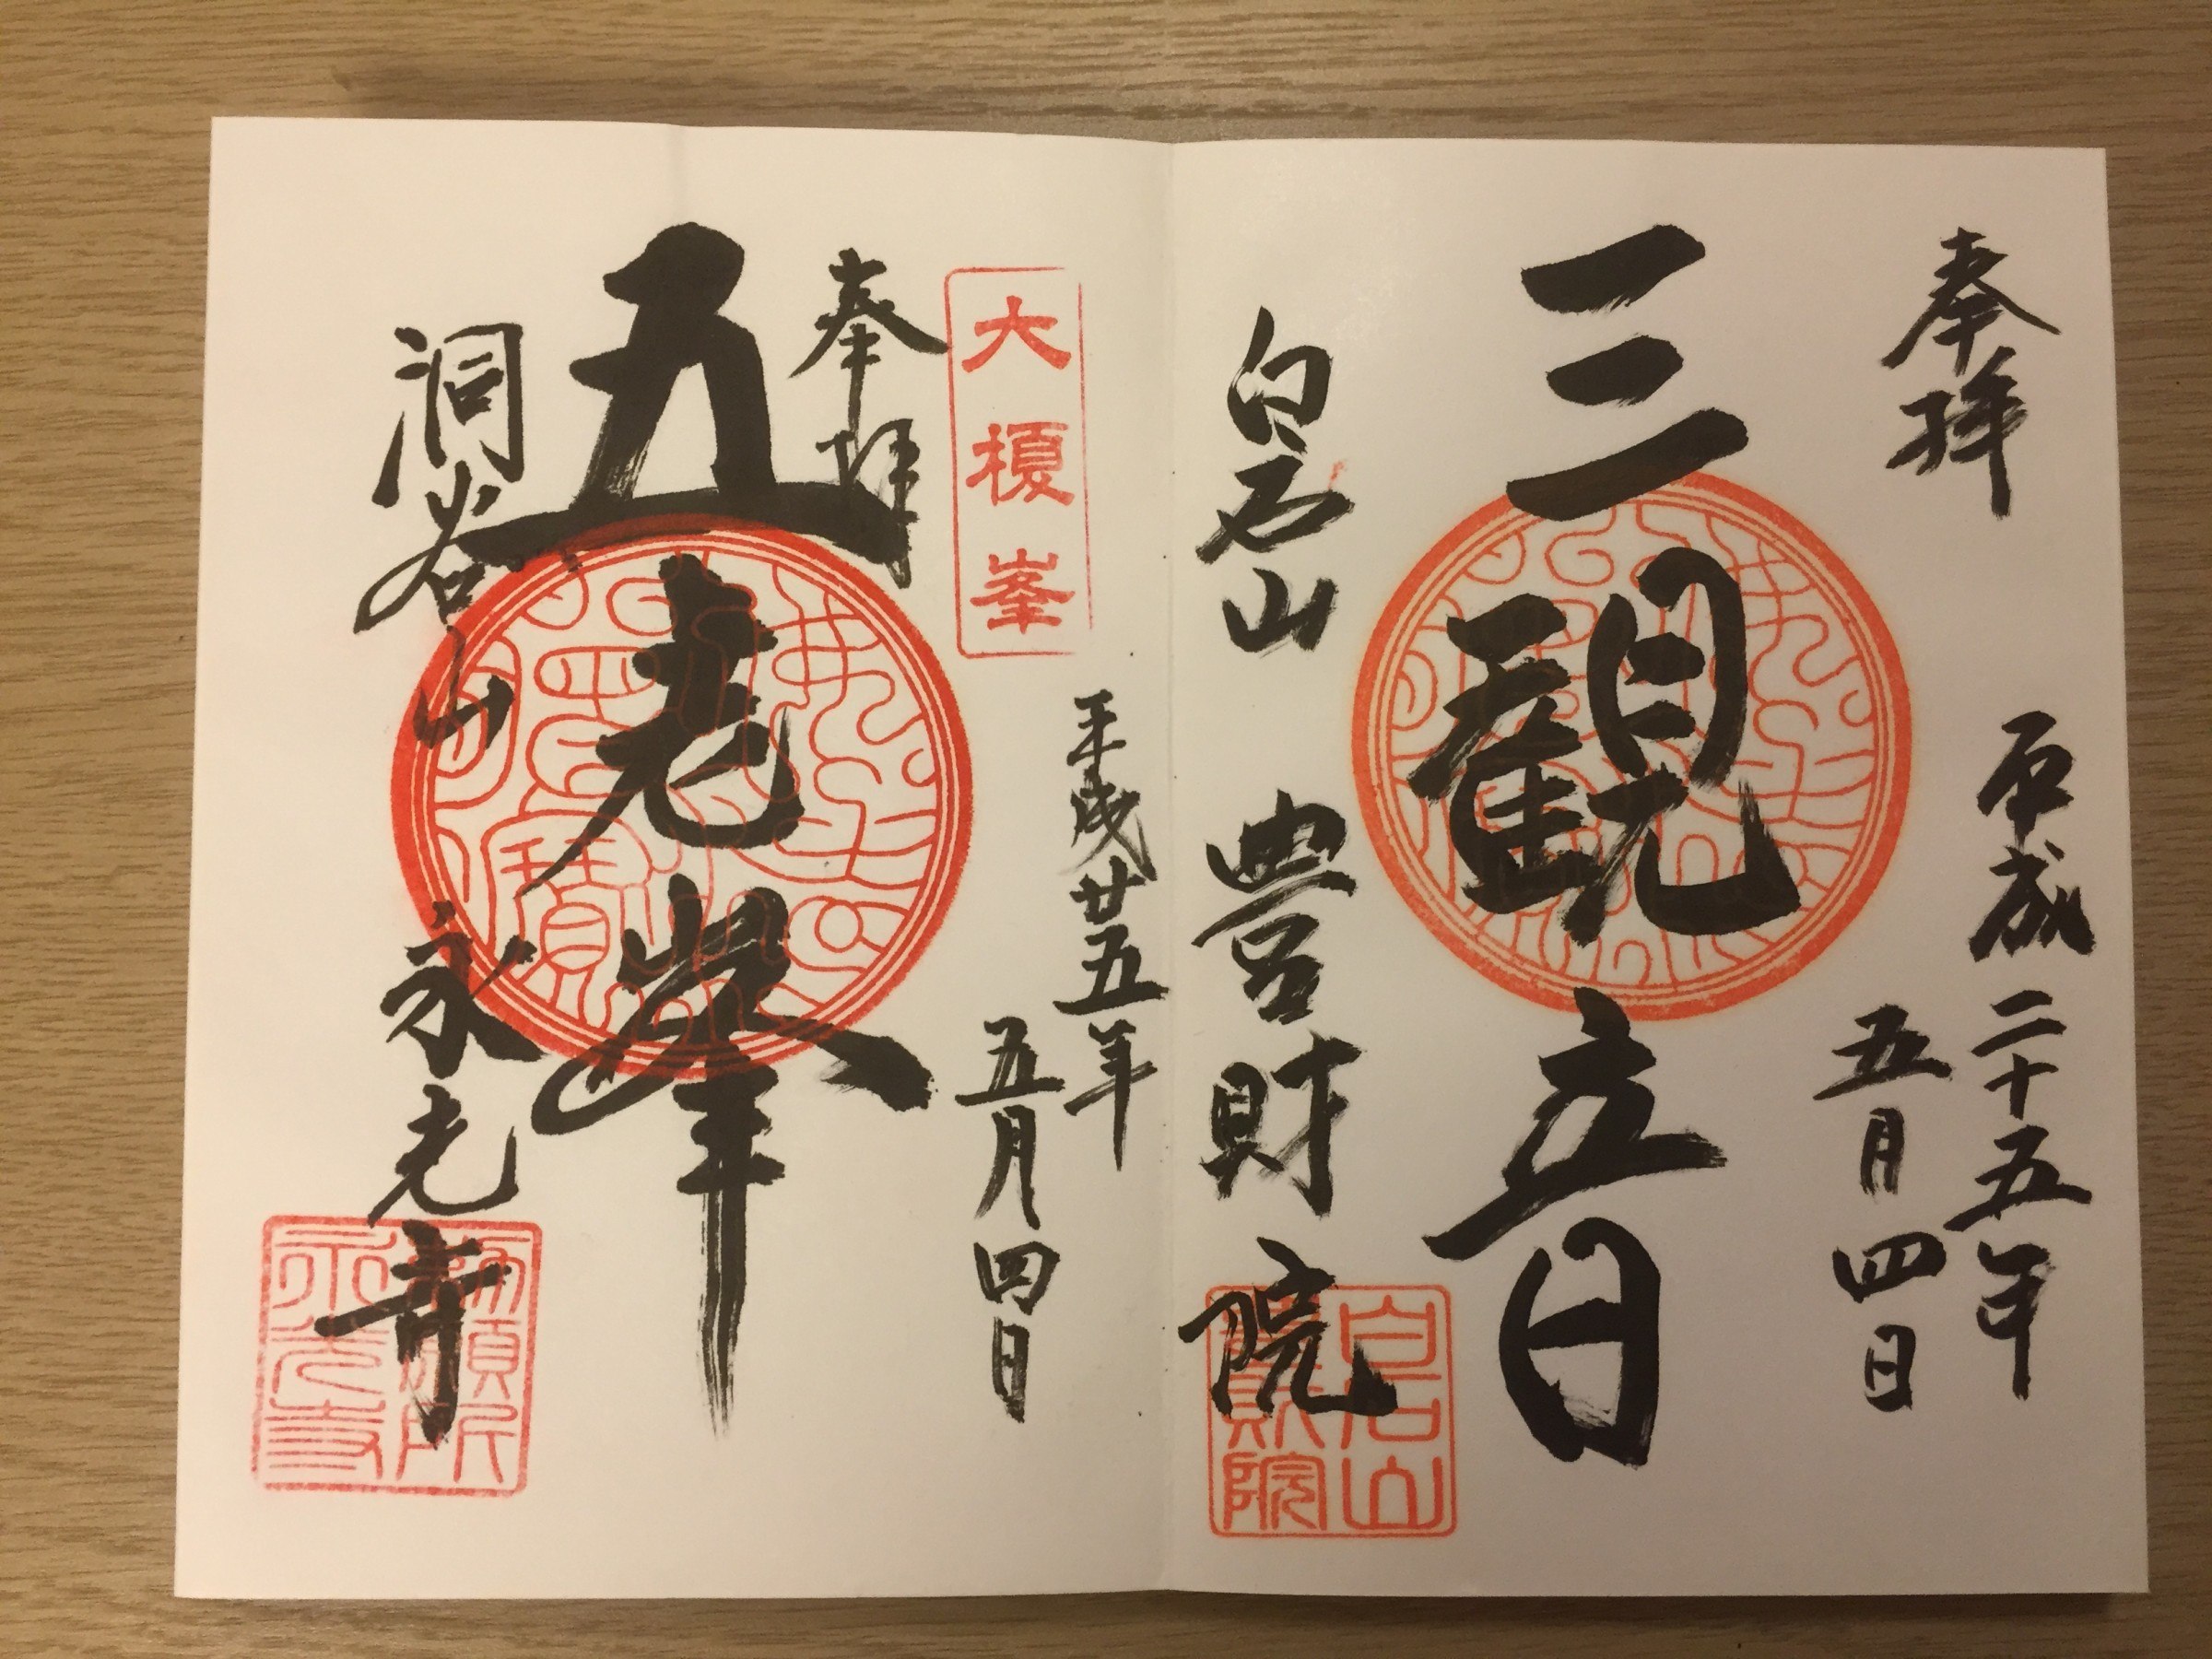 奉拝
平成二十五年
五月四日
三観音
白石山 豊財院
白石山
豊財院
大榎峯
奉拝
平成廿五年
五月四日
五老峯
洞谷山 永光寺
勅願所
永光寺